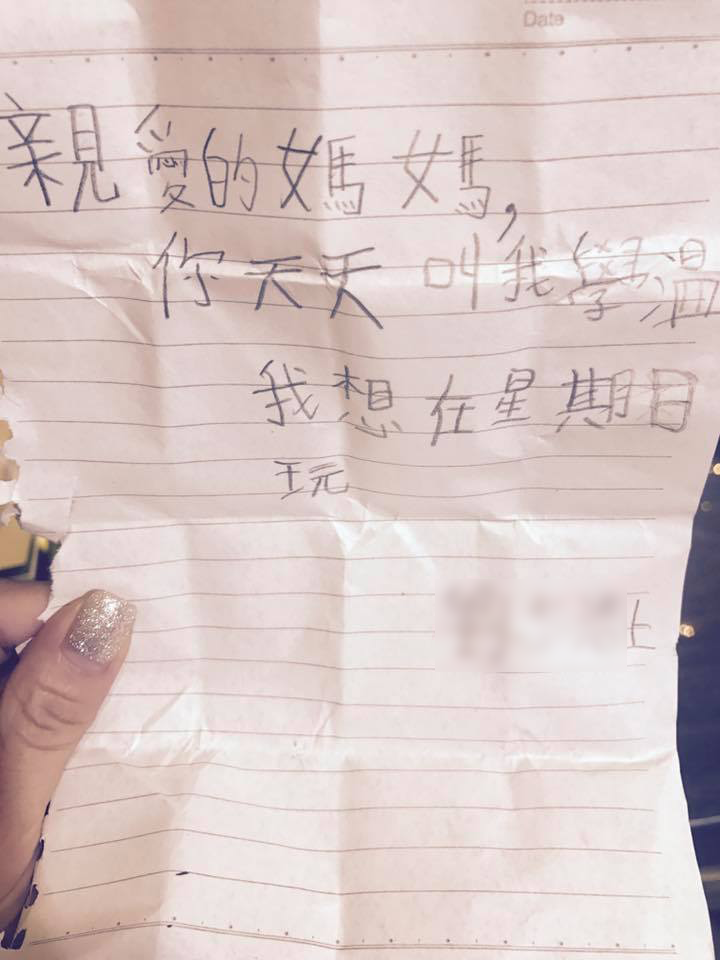 Date
親愛的媽媽,
你天天叫我學溫
我想在星期日
玩
上